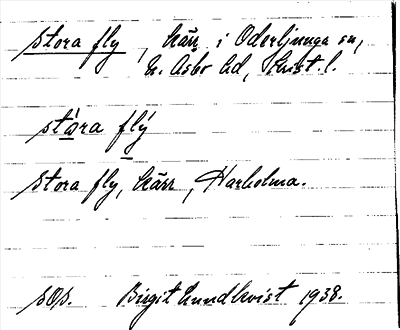 stora fly, kärr i Oderljunga sn,
N. Åsbo hd, Krist. l.
stora flý
stora fly, kärr, Harholma.
sOs. Birgit Lundkvist 1938.